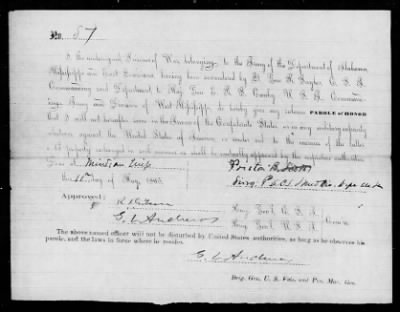 No. 57
I the undersigned Prisoner of War, belonging to the Army of the Department of Alabama,
Mississippi and East Louisiana, having been surrendered by Lt. Gen. R. Taylor, C. S. A.
Commanding said Department, to Maj. Gen. E. R. S. Canby, U. S. A. Command-
ing Army and Division of West Mississippi, do hereby give my solemn PAROLE OF HONOR
that I will not hereafter serve in the Armies of the Confederate States, or in any military capacity
whatever, against the United States of America, or render aid to the enemies of the latter,
until properly exchanged in such manner as shall be mutually approved by the respective authorities.
Done at Meridian Miss
the day of May, 1865.
Approved:
E. L. Andrews
Brig. Gen'l C. S. A.
Brig. Gen'l U. S. A.
The above named officer will not be disturbed by United States authorities, as long as he observes his
parole, and the laws in force where he resides.
E. L. Andrews
Brig. Gen. U. S. Vols., and Pro. Mar. Gen.